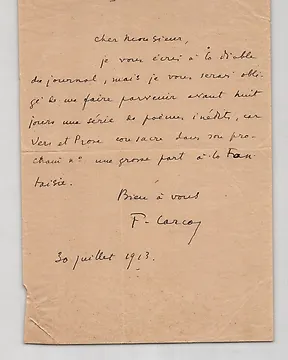 Cher Monsieur,
je vous écris à la diable
du journal, mais je vous serai obli-
gé de me faire parvenir avant huit
jours une série de poèmes inédits, car
Vers et Prose consacre dans son pro-
chain n° une grosse part à la Fan-
taisie.
Bien à vous
F. Carco
30 juillet 1913.